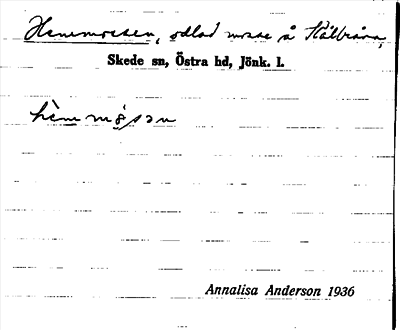 Hemmossen, odlad mosse å Stålbråna,
Skede sn, Östra hd, Jönk. l.
hèmmósən
Annalisa Anderson 1936